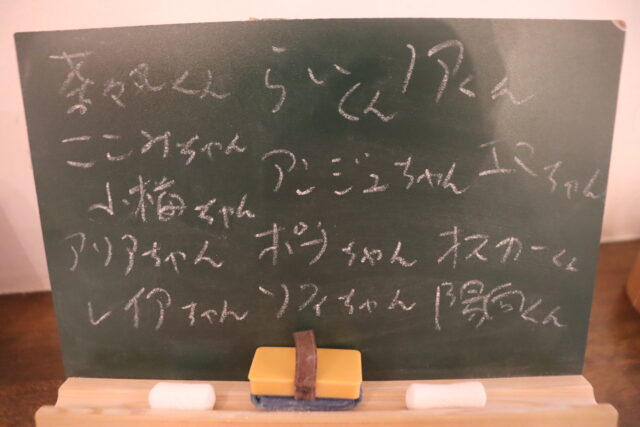 茶々丸くん らいくん ノアくん
ここみちゃん アンジュちゃん エマちゃん
小梅ちゃん
アリアちゃん ポラちゃん オスカーくん
レイアちゃん ソフィちゃん 陽向くん